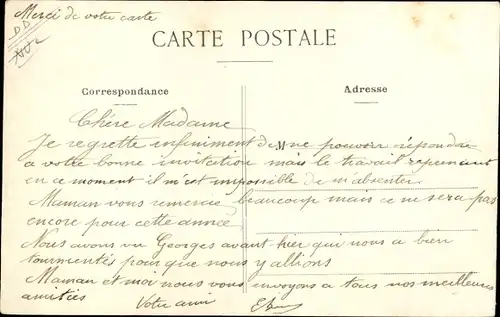 Merci de votre carte
CARTE POSTALE
Correspondance
Adresse
Chère Madame
Je regrette infiniment de ne pouvoir répondre
a votre bonne invitation mais le travail reprenant
en ce moment il m'est impossible de m'absenter
Maman vous remercie beaucoup mais ce ne sera pas
encore pour cette année
Nous avons vu Georges avant hier qui nous a bien
tourmentés pour que nous y allions
Maman et moi nous vous envoyons a tous nos meilleures
amitiés Votre ami